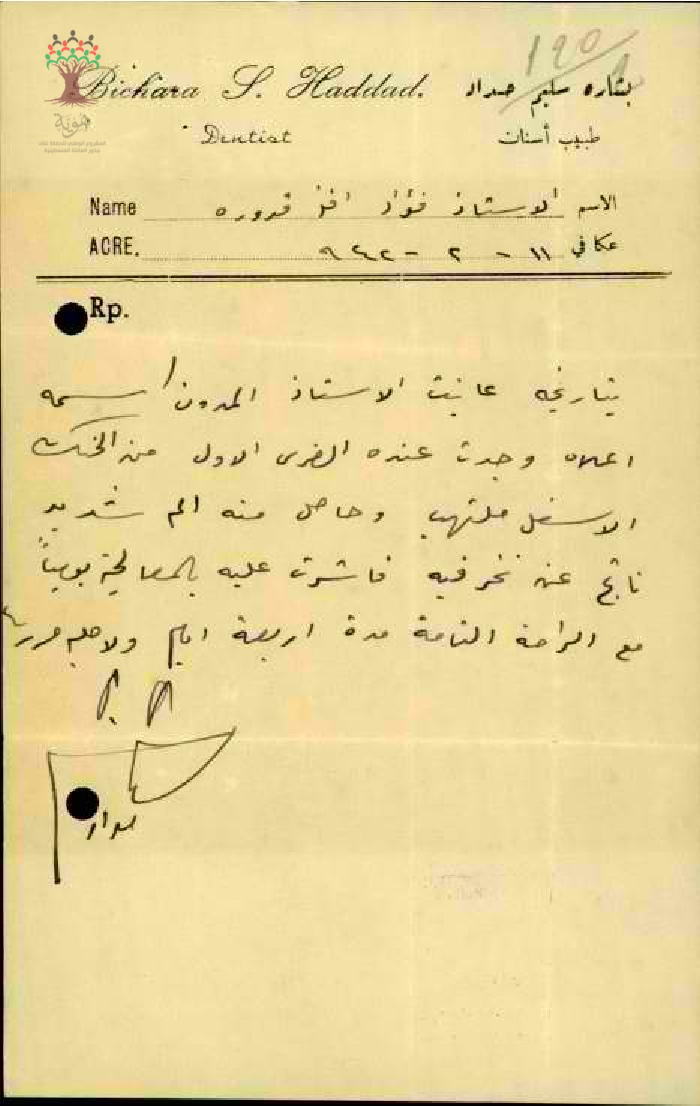 190
Bichara S. Haddad. بشاره سليم حداد
Dentist طبيب أسنان
هوية
Name الاستاذ فؤاد افندي قدوره الاسم
ACRE. ١١ - ٢ - ٩٤٢ عكا في
Rp.
بتاريخه عاينت الاستاذ المدون اسمه
اعلاه وجدت عنده الضرس الاول من الحنك
الاسفل ملتهب وحاصل منه الم شديد
ناتج عن نخر فيه فاشرت عليه بالمعالجة يومياً
مع الراحة التامة مدة اربعة ايام ولاجله حررت
حداد